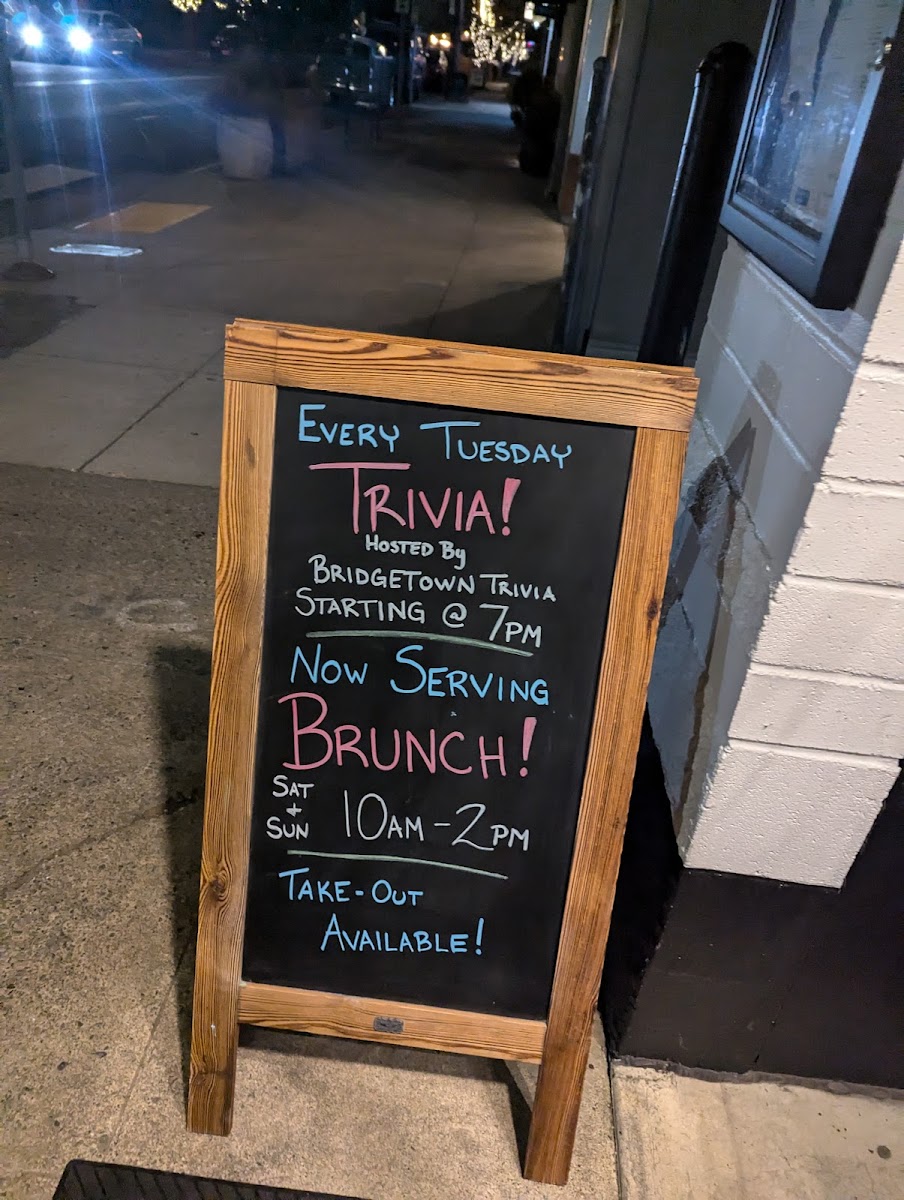 EVERY TUESDAY
TRIVIA!
HOSTED By
BRIDGETOWN TRIVIA
STARTING @ 7PM
NOW SERVING
BRUNCH!
SAT
+
SUN
10AM-2PM
TAKE-OUT
AVAILABLE!